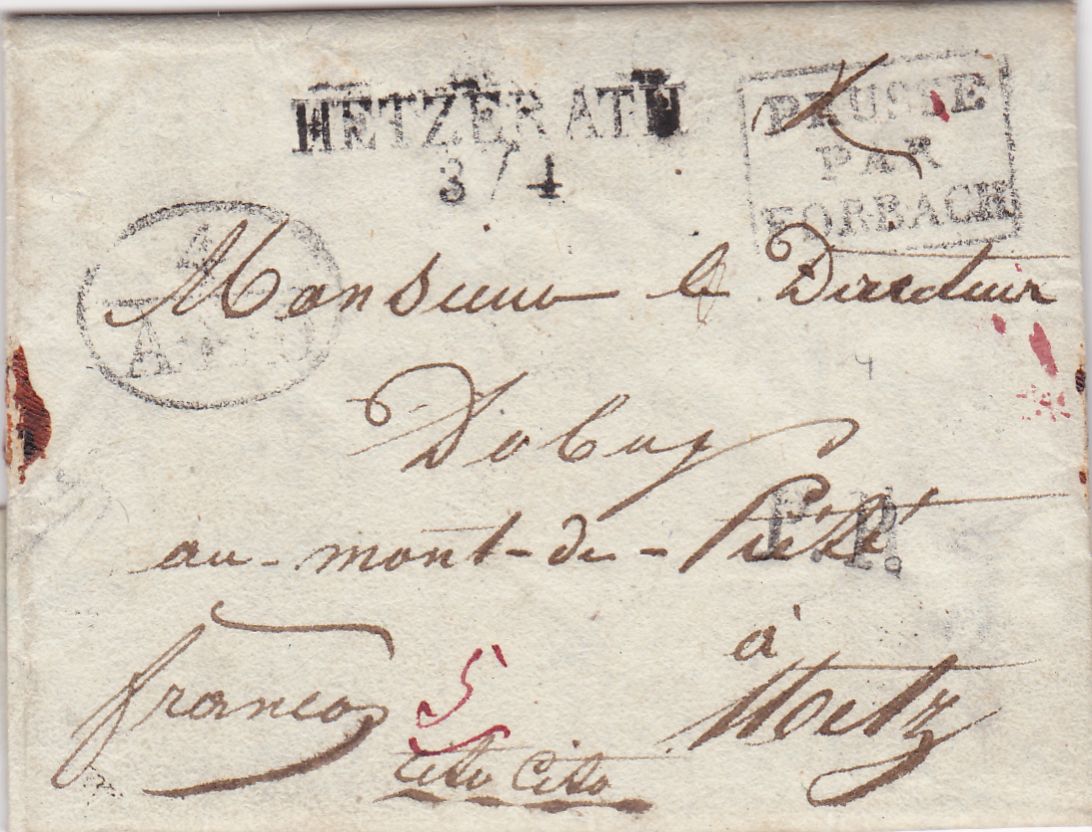 HETZERATH
3/4
PRUSSE
PAR
FORBACH
4
Monsieur le Directeur
4
Dobuy
au-mont-de-Piété
P.P.
à
Metz
franco
5
Cito Cito